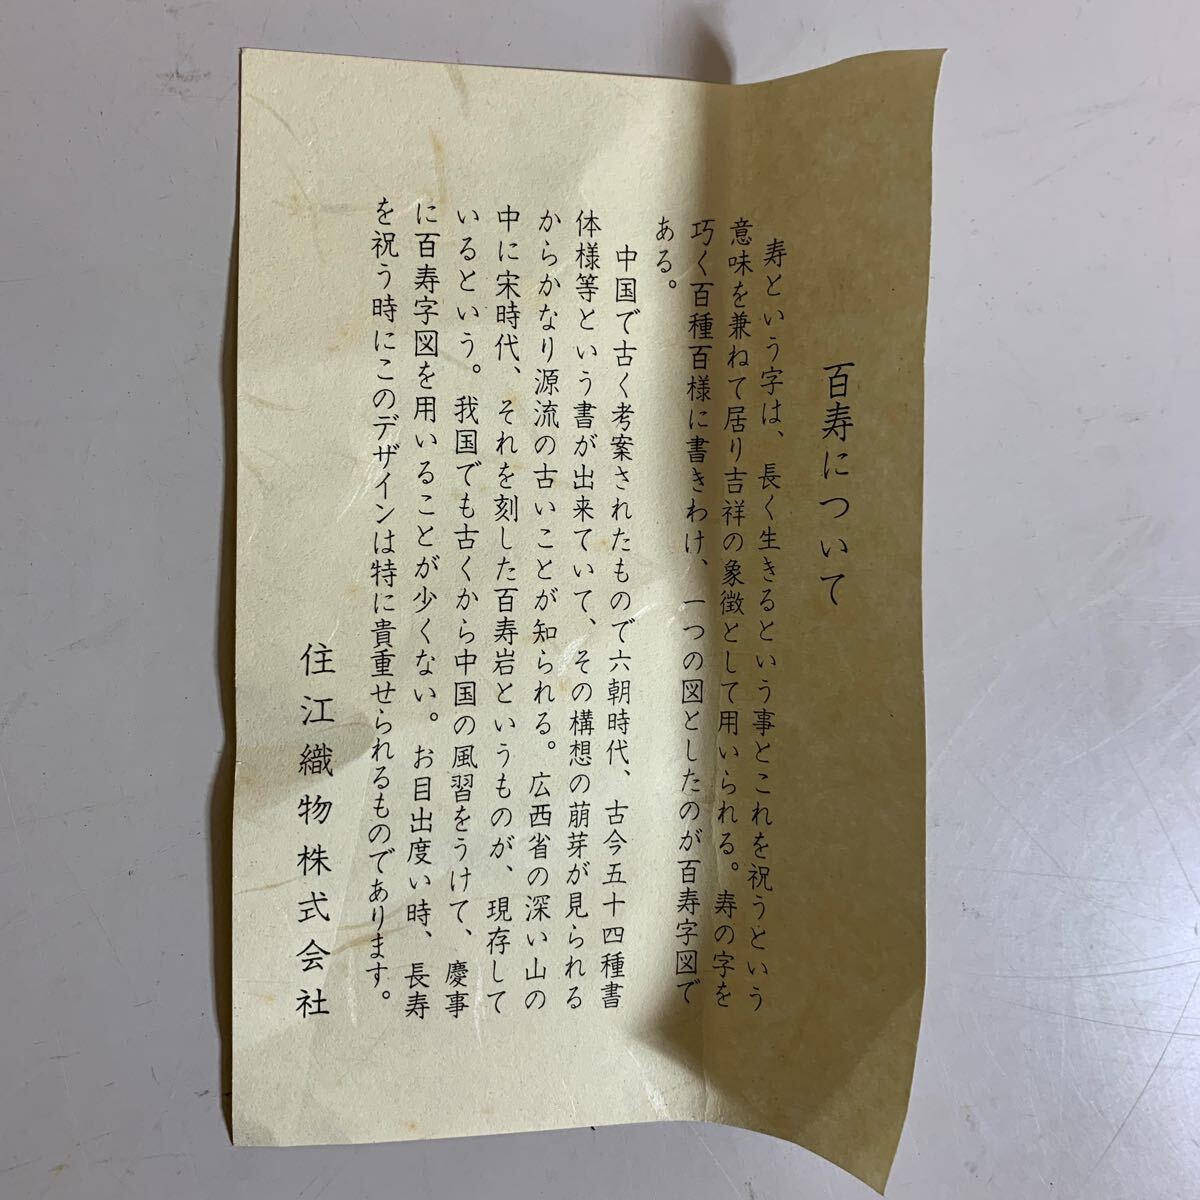 百寿について
寿という字は、長く生きるという事とこれを祝うという
意味を兼ねて居り吉祥の象徴として用いられる。寿の字を
巧く百種百様に書きわけ、一つの図としたのが百寿字図で
ある。
中国で古く考案されたもので六朝時代、古今五十四種書
体様等という書が出来ていて、その構想の萠芽が見られる
からかなり源流の古いことが知られる。広西省の深い山の
中に宋時代、それを刻した百寿岩というものが、現存して
いるという。我国でも古くから中国の風習をうけて、慶事
に百寿字図を用いることが少くない。お目出度い時、長寿
を祝う時にこのデザインは特に貴重せられるものであります。
住江織物株式会社